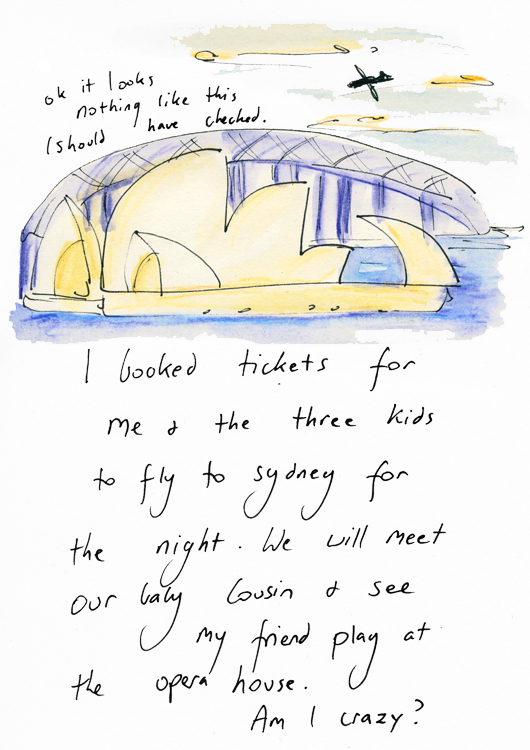 ok it looks
nothing like this
(should have checked.
I booked tickets for
me & the three kids
to fly to sydney for
the night. We will meet
our baby cousin & see
my friend play at
the opera house.
Am I crazy?